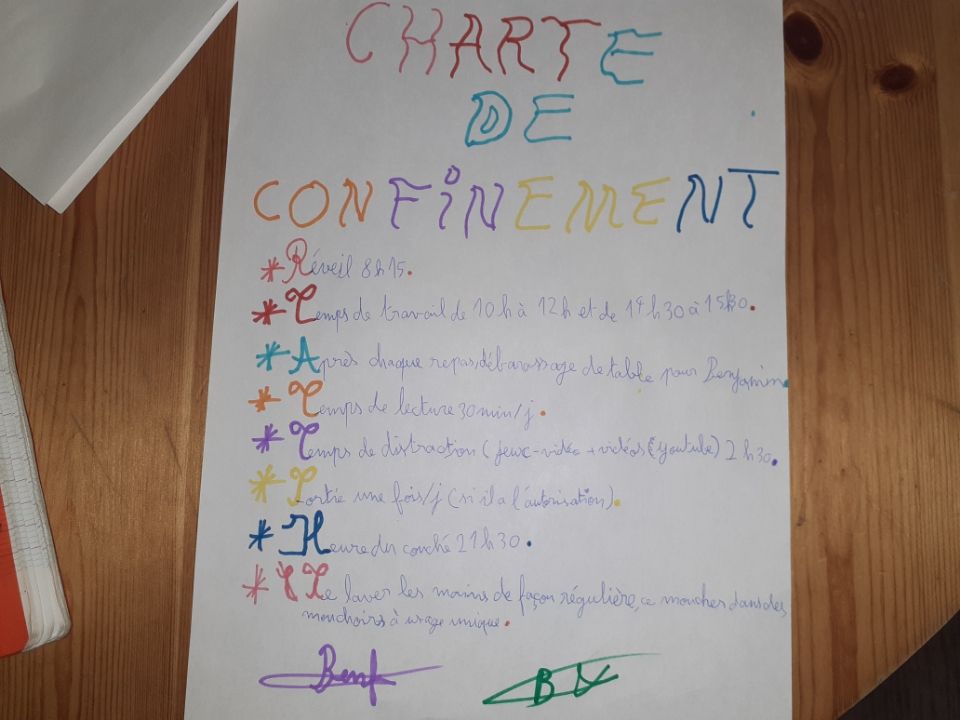 CHARTE
DE
CONFINEMENT
* Réveil 8h15.
* Temps de travail de 10h à 12h et de 14h30 à 15h30.
* Après chaque repas, débarassage de table pour Benjamin.
* Temps de lecture 30 min/j.
* Temps de distraction (jeux-vidéo + vidéos (youtube) 2h30.
* Sortie une fois/j (si il a l'autorisation).
* Heure du couché 21h30.
* Se laver les mains de façon régulière, ce moucher dans des
mouchoirs à usage unique.
Benj